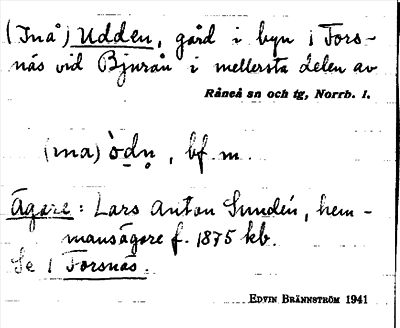 (Inå) Udden, gård i byn i Fors-
näs vid Bjurån i mellersta delen av
Råneå sn och tg, Norrb. l.
(ina) , bf. m.
Ägare: Lars Anton Sundén, hem-
mansägare f. 1875 kb.
Se 1 Forsnäs.
EDVIN BRÄNNSTRÖM 1941